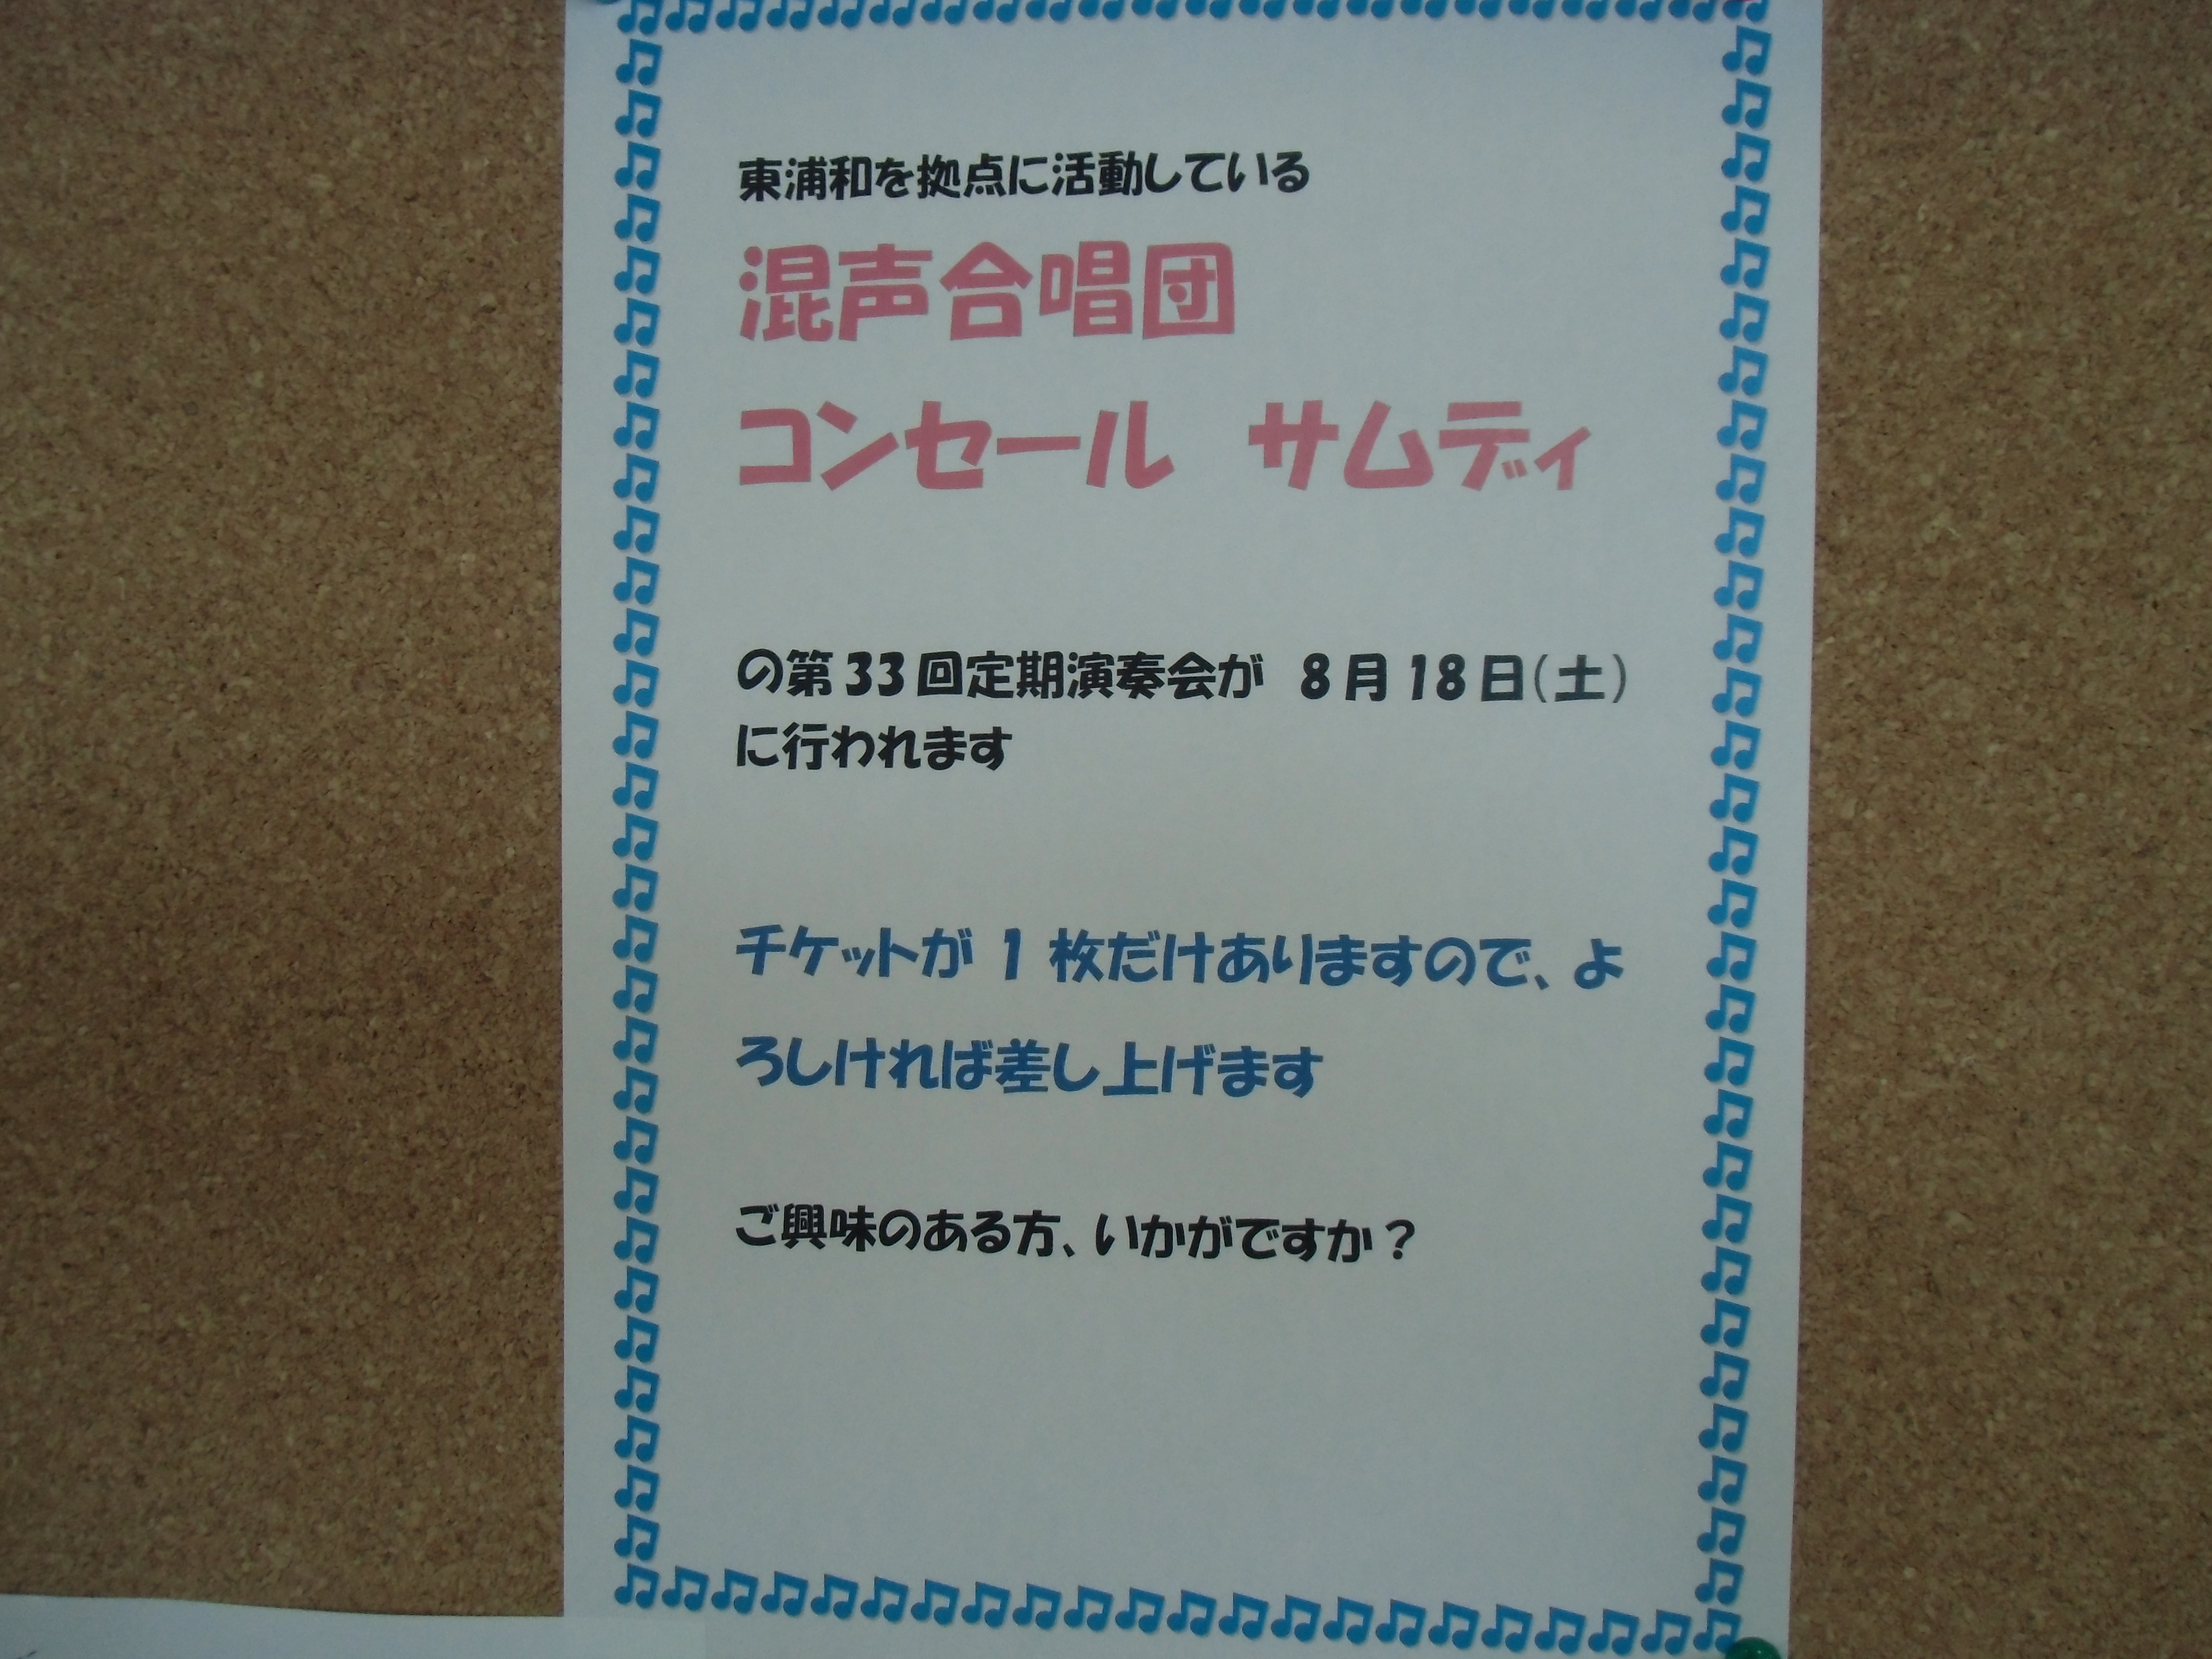 東浦和を拠点に活動している
混声合唱団
コンセール　サムディ
の第33回定期演奏会が　8月18日(土)
に行われます
チケットが1枚だけありますので、よ
ろしければ差し上げます
ご興味のある方、いかがですか？